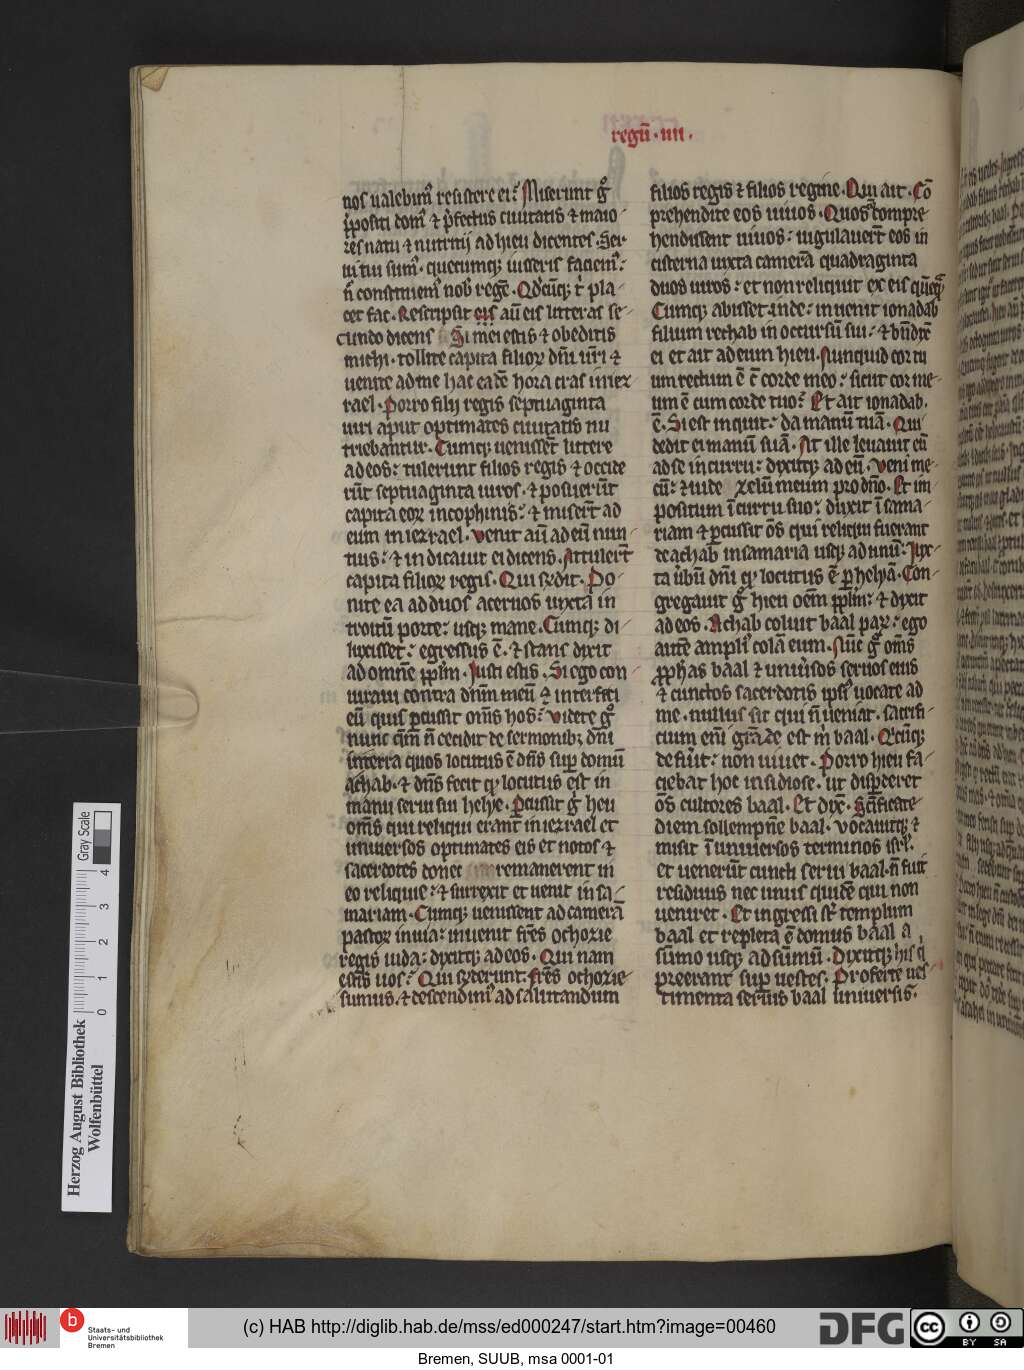 regu᷒ · iiii ·
nos ualebim᷒ resistere ei? Miserunt g̊
p̄positi dom᷒ ⁊ p̄fectus ciuitatis ⁊ maio-
res natu ⁊ nutritij ad hieu dicentes. Ser
ui tui sum᷒. quecumq; iusseris faciem᷒:
n̄ constituem᷒ nob̄ regē. Qd̄cūq; t̄ pla-
cet fac. Rescripsit eis aūt eis litteras se-
cundo dicens Si mei estis ⁊ obeditis
michi. tollite capita filioꝝ dn̄i ur̄i ⁊
uenite ad me hac eadē hora cras in iez-
rael. Porro filij regis septuaginta
uiri aput optimates ciuitatis nu
triebantur. Cumq; uenissēt littere
ad eos: tulerunt filios regis ⁊ occide
rūt septuaginta uiros. ⁊ posuerūt
capita eoꝝ in cophinis: ⁊ miserūt ad
eum in iezrael. Venit aūt ad eū nun
tius: ⁊ indicauit ei dicens. Attulerūt
capita filioꝝ regis. Qui r̄ndit. Po-
nite ea ad duos aceruos iuxta in
troitū porte: usq; mane. Cumq; di-
luxisset: egressus ē. ⁊ stans dixit
ad omnē pp̄lm. Iusti estis. Si ego con-
iuraui contra dn̄m meū ⁊ interfeci
eū quis ꝑcussit om̄s hos? Videte g̊
nunc qm̄ n̄ cecidit de sermonib; dn̄i
in terra quos locutus ē dn̄s sup domū
achab. ⁊ dn̄s fecit qd̄ locutus est in
manu serui sui helye. Percussit g̊ hieu
om̄s qui reliqui erant in iezrael et
uniuersos optimates eius et notos ⁊
sacerdotes donec remanerent in
eo reliquie: ⁊ surrexit et uenit in sa-
mariam. Cumq; uenissent ad camerā
pastoꝝ in uia: inuenit fr̄es ochozie
regis iuda: dixitq; ad eos. Qui nam
estis uos? Qui r̄nderunt. fr̄es ochozie
sumus. ⁊ descendim᷒ ad salutandum
filios regis ⁊ filios regine. Qui ait. Cō
prehendite eos uiuos. Quos cū compre-
hendissent uiuos: iugulauerūt eos in
cisterna iuxta camerā quadraginta
duos uiros: et non reliquit ex eis quēq̄
Cumq; abisset inde: inuenit ionadab
filium rechab in occursū sui: ⁊ bn̄dixē
ei et ait ad eum hieu. Nunquid cor tu
um rectum ē c̄ corde meo: sicut cor me-
um ē cum corde tuo? Et ait ionadab.
ē. Si est inquit: da manū tuā. Qui
dedit ei manū suā. At ille leuauit eū
ad se in currū: dixitq; ad eū. Veni me-
cū: ⁊ uide zelū meum pro dn̄o. Et im-
positum ī curru suo: duxit ī sama-
riam ⁊ ꝑcussit om̄s qui reliqui fuerant
de achab in samaria usq; ad unū: Iux-
ta ūbū dn̄i qd̄ locutus ē ꝑ helyā. Con-
gregauit g̊ hieu oēm pp̄lm: ⁊ dixit
ad eos. Achab coluit baal paꝝ: ego
autē ampli᷒ colā eum. Nūc g̊ om̄s
ꝓphas baal ⁊ uniūsos seruos eius
⁊ cunctos sacerdotes ipsi᷒ uocate ad
me. nullus sit qui n̄ ueniat. sacrifi-
cium eni grāde est m̄ baal. Qd̄cūq;
defūit: non uiuet. Porro hieu fa-
ciebat hoc insidiose. ut disꝑderet
om̄s cultores baal. Et dix̄. Scificate
diem sollempnē baal. uocauitq; ⁊
misit ī uniuersos terminos isrl̄.
Et uenerūt cuncti serui baal. n̄ fuit
residuus nec unus quidē qui non
ueniret. Et ingressi sūt templum
baal et repleta ē domus baal a
sūmo usq; ad sūmū. Dixitq; his q̄
preerant sup uestes. Proferte ues-
timenta seruis baal uniuersis.
Herzog August Bibliothek
Wolfenbüttel
Gray Scale
0 1 2 3 4
b Staats- und
Universitätsbibliothek
Bremen
(c) HAB http://diglib.hab.de/mss/ed000247/start.htm?image=00460
DFG
cc BY SA
Bremen, SUUB, msa 0001-01